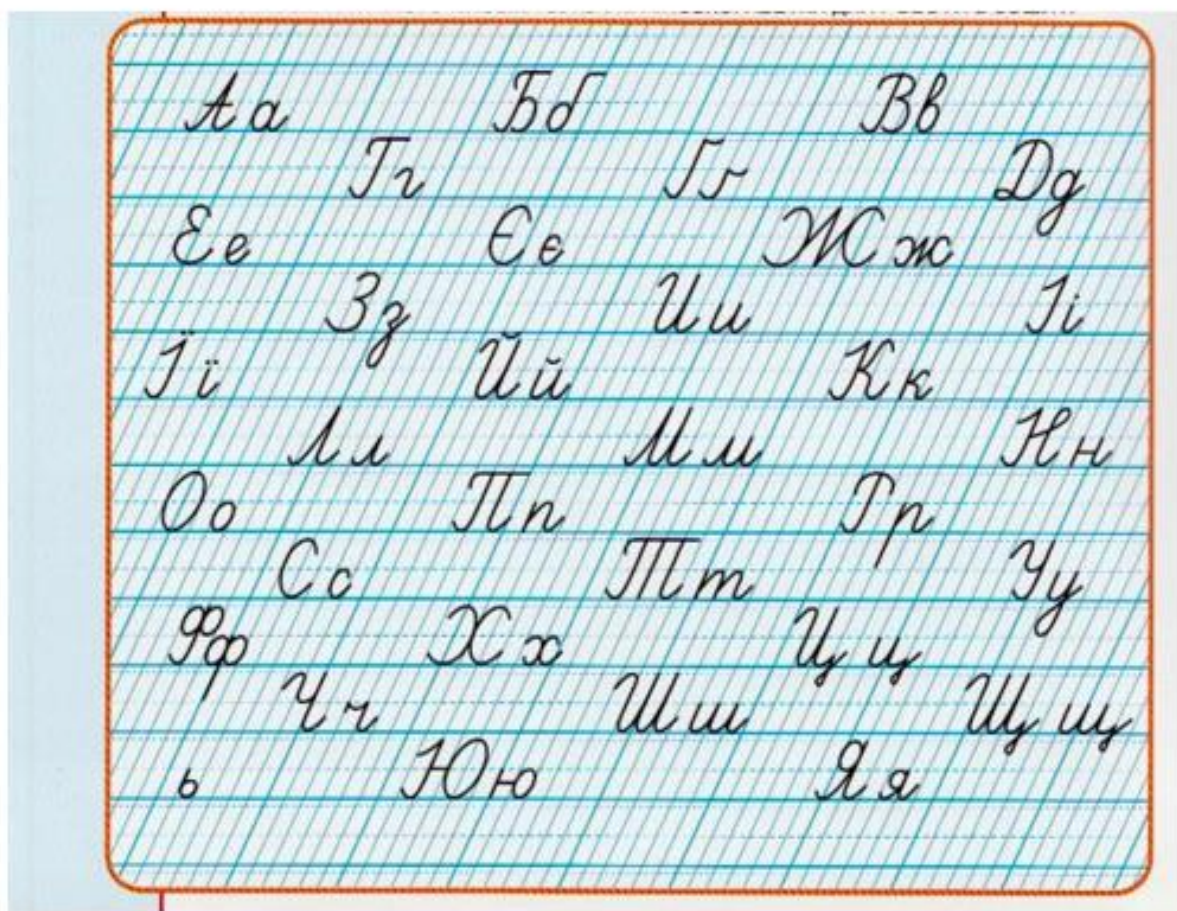 Аа Бб Вв
Гг Ґґ Дд
Ее Єє Жж
Зз Ии Іі
Її Йй Кк
Лл Мм Нн
Оо Пп Рр
Сс Тт Уу
Фф Хх Цц
Чч Шш Щщ
ь Юю Яя